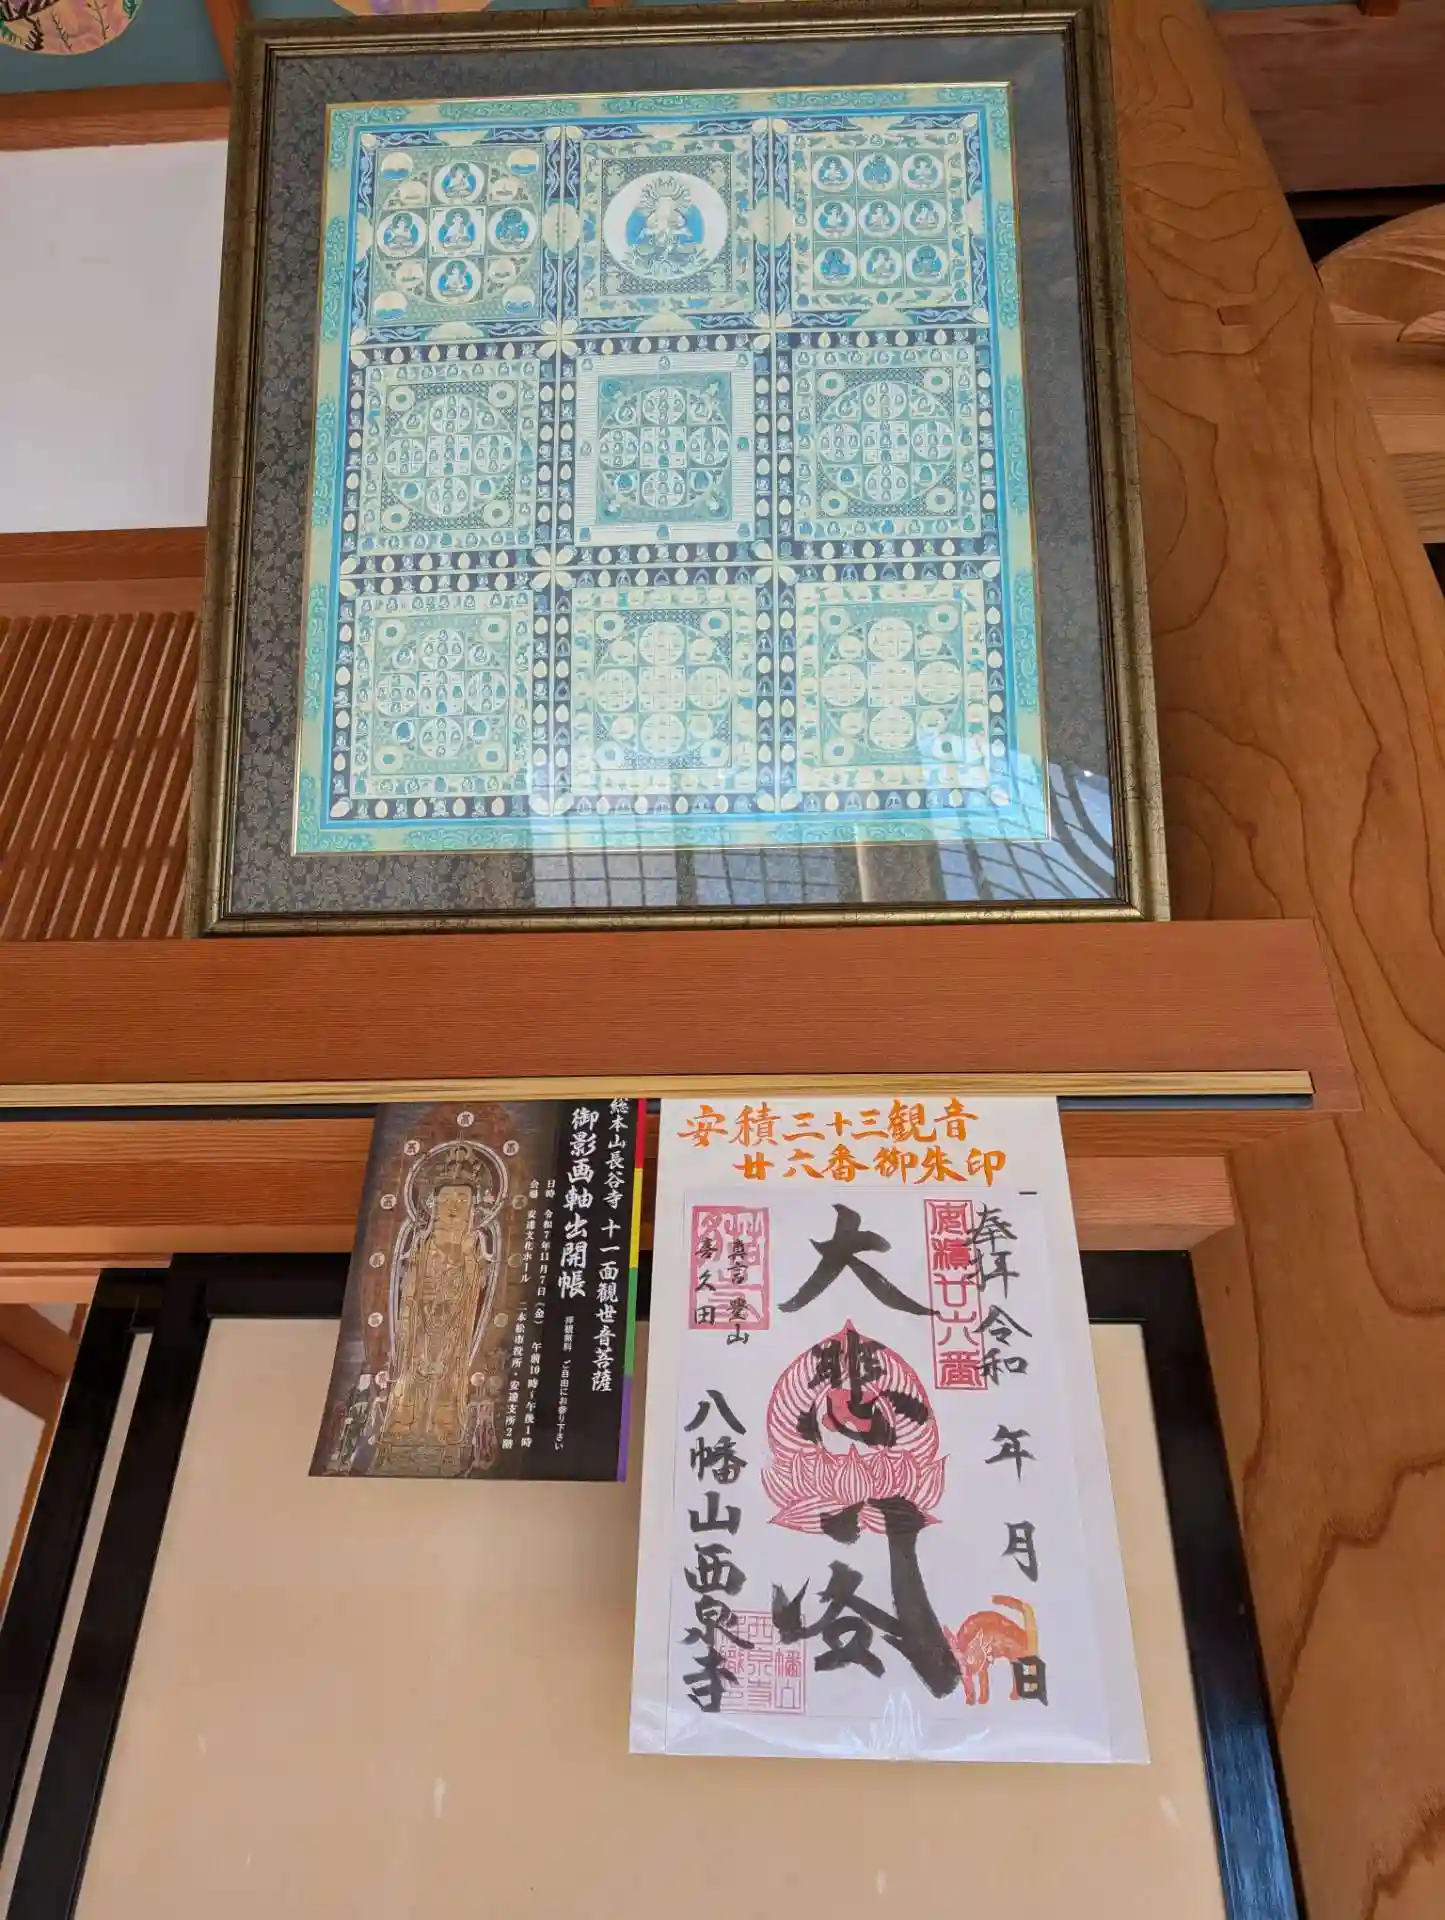 総本山長谷寺 十一面観世音菩薩
御影画軸出開帳
拝観無料 ご自由にお参り下さい
日時 令和7年11月7日(金) 午前10時~午後1時
会場 安達文化ホール 二本松市役所・安達支所2階
安積三十三観音
廿六番御朱印
奉拝 令和 年 月 日
安積廿六番
大悲閣
真言 豊山
喜久田
八幡山西泉寺